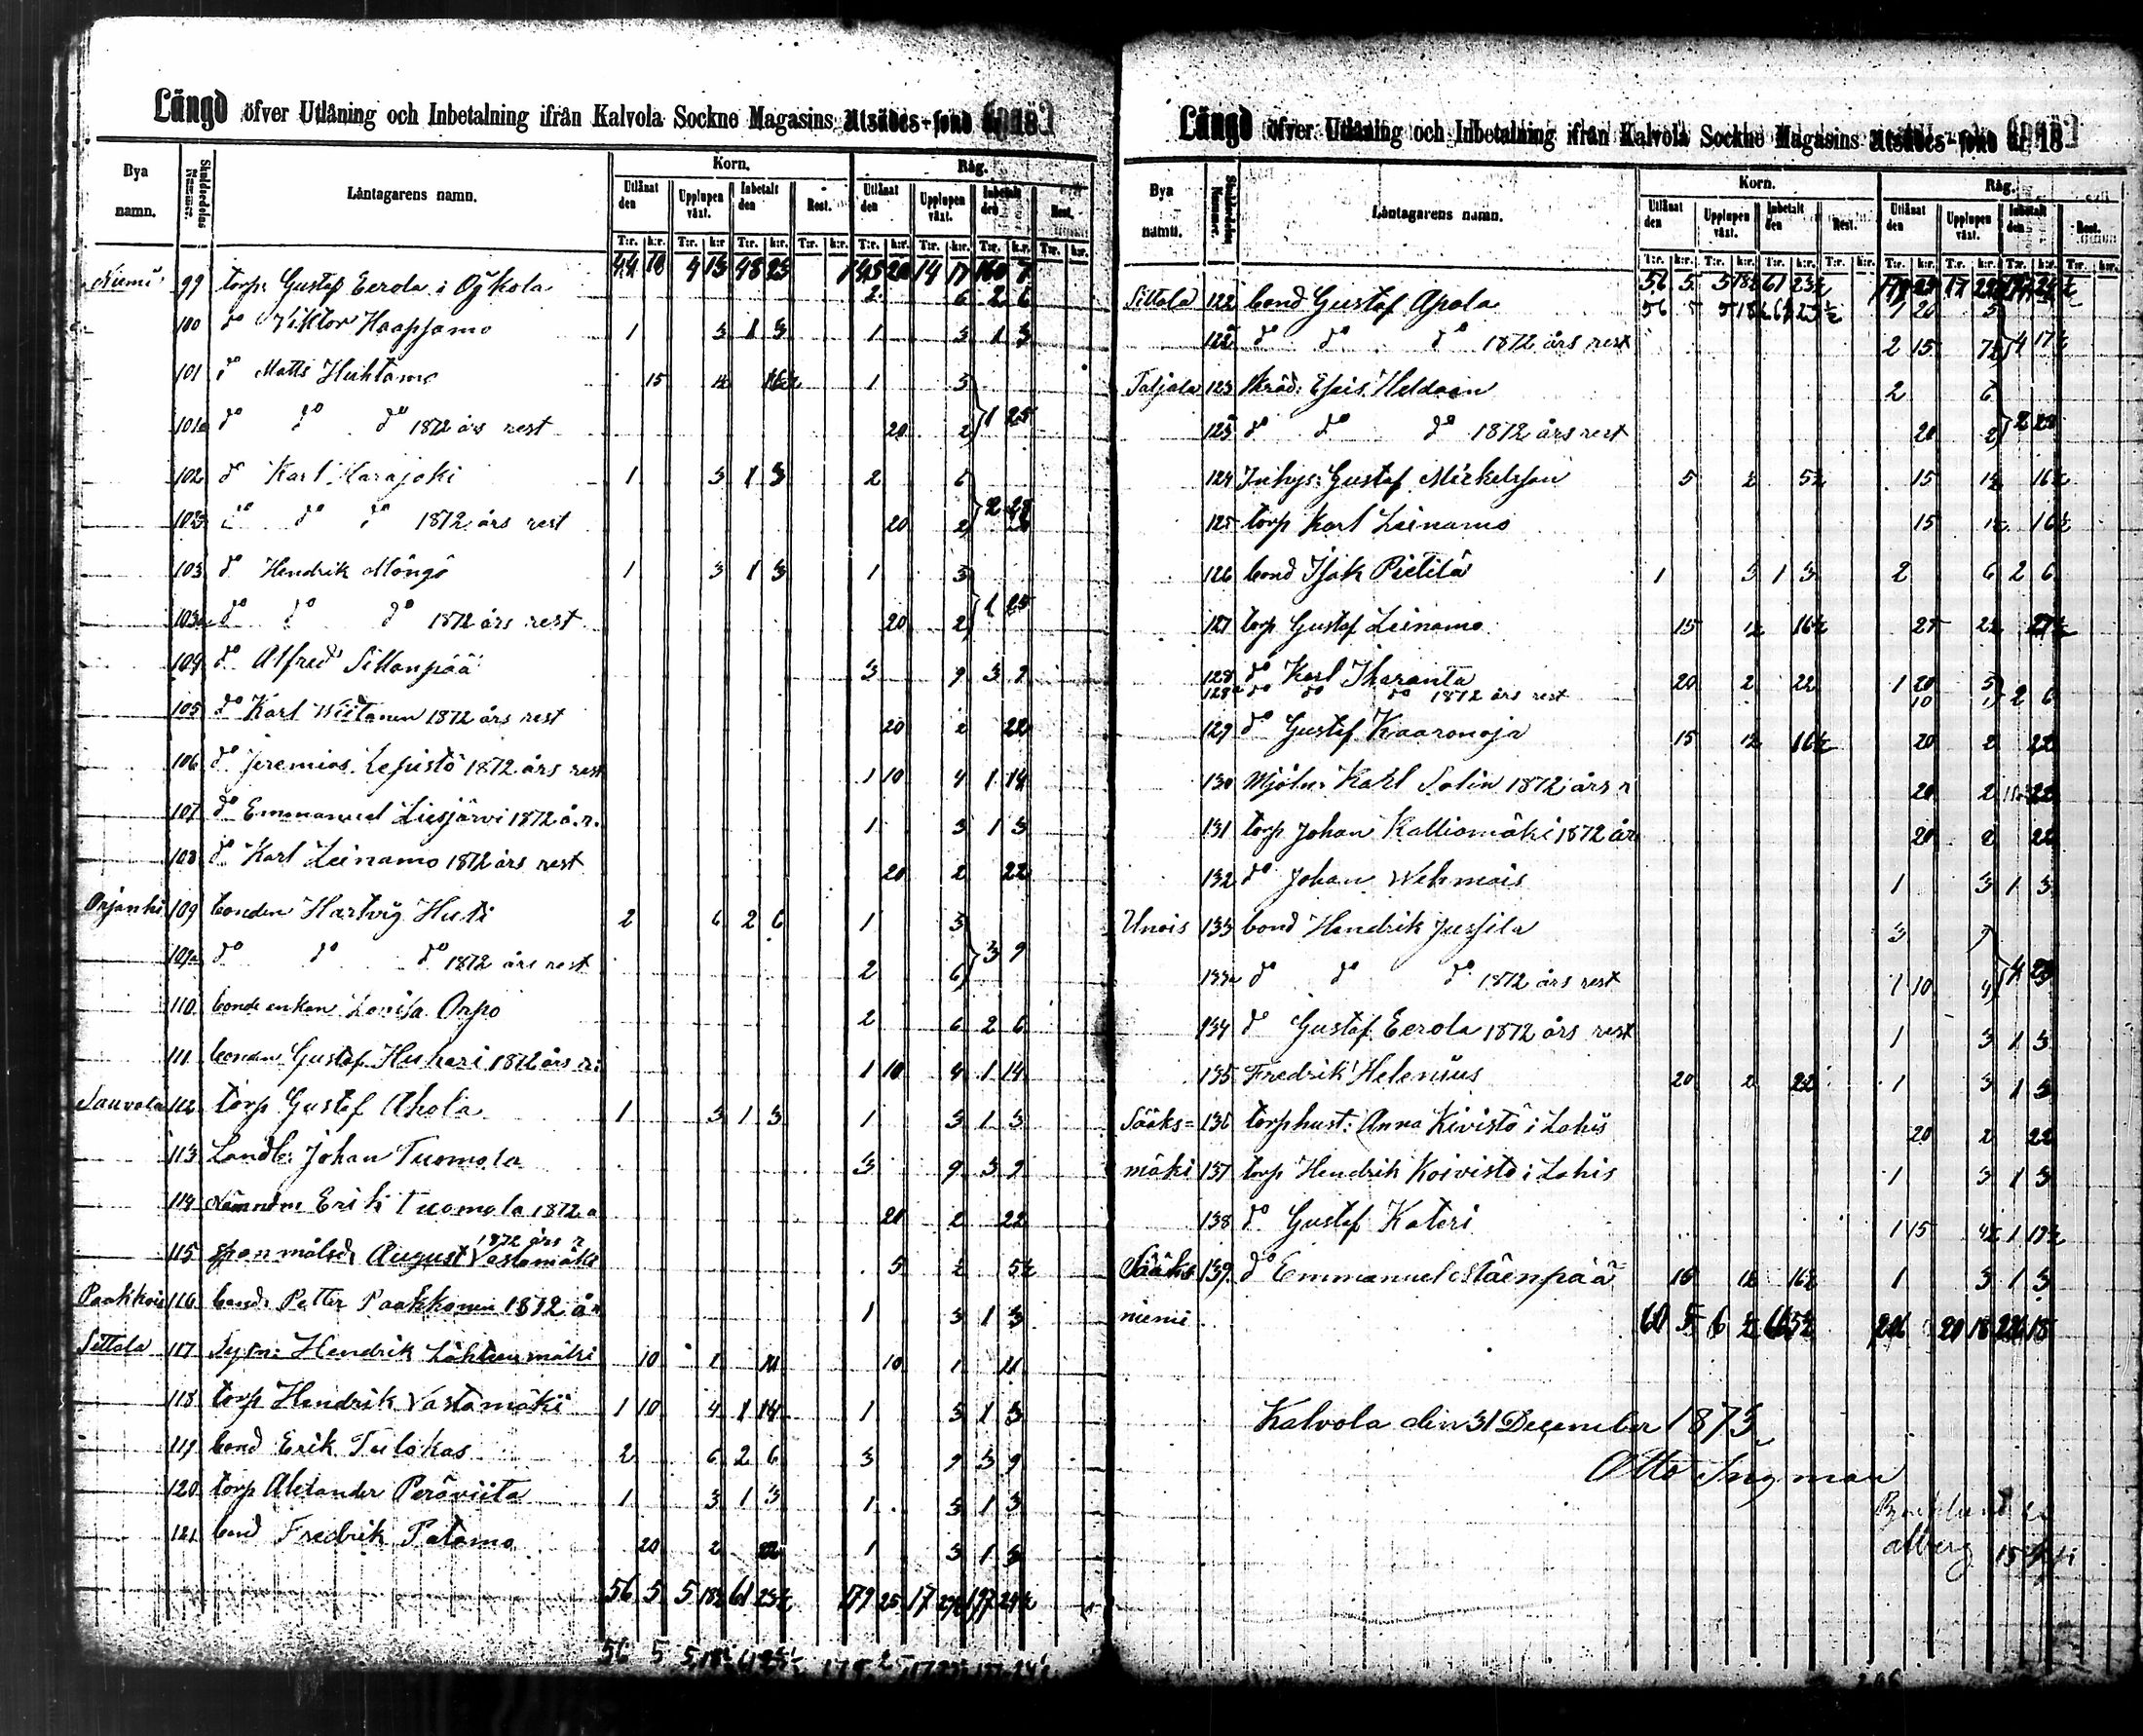 Längd öfver Utlåning och Inbetalning ifrån Kalvola Sockne Magasins Utsädes-fond år 18
Bya namn. Skuldsedelns Nummer. Låntagarens namn. Korn. Råg.
Utlånat den Upplupen växt. Inbetalt den Rest. Utlånat den Upplupen växt. Inbetalt den Rest.
T:r. k:r. T:r. k:r T:r. k:r. T:r. k:r. T:r. k:r. T:r. k:r. T:r. k:r. T:r. k:r.
44 10 4 13 48 23 145 20 14 17 160 7
Niemi 99 torp: Gustaf Eerola i Ojkola 2 6 2 6
100 do Viktor Haapjamo 1 3 1 3 1 3 1 3
101 do Matts Huhtamo 15 1½ 16½ 1 3
101a do do do 1872 års rest 20 2 } 1 25
102 do Karl Karajoki 1 3 1 3 2 6
102a do do do 1872 års rest 20 2 } 2 28
103 do Hendrik Möngö 1 3 1 3 1 3
103a do do do 1872 års rest 20 2 } 1 25
104 do Alfred Sillanpää 3 9 3 9
105 do Karl Wiitanen 1872 års rest 20 2 22
106 do Jeremias Lepistö 1872 års rest 1 10 4 1 14
107 do Emmanuel Liesjärvi 1872 å. r. 1 3 1 3
108 do Karl Leinamo 1872 års rest 20 2 22
Orjanhi 109 bonden Hartvig Huti 2 6 2 6 1 3
109a do do do 1872 års rest 2 6 } 3 9
110 bonde enkan Lovisa Orpo 2 6 2 6
111 bonden Gustaf Huhari 1872 års r: 1 10 4 1 14
Sauvala 112 torp Gustaf Ahola 1 3 1 3 1 3 1 3
113 Landb: Johan Tuomola 3 9 3 9
114 Nämndm Erik Tuomola 1872 a 20 2 22
1872 års r
115 spanmålsd: August Vastamäki 5 ½ 5½
Paakkois 116 bond: Petter Paakkonen 1872 år 1 3 1 3
Sittala 117 Sysm: Hendrik Lähteenmäki 10 1 11 10 1 11
118 torp Hendrik Vastamäki 1 10 4 1 14 1 3 1 3
119 bond Erik Tulokas 2 6 2 6 3 9 3 9
120 torp Alexander Peräviita 1 3 1 3 1 3 1 3
121 bond Fredrik Patamo 20 2 22 1 3 1 3
56 5 5 18½ 61 23½ 179 25 17 29½ 197 24½
56 5 5 18½ 61 23½
Längd öfver Utlåning och Inbetalning ifrån Kalvola Sockne Magasins Utsädes-fond år 18
Bya namn. Skuldsedelns Nummer. Låntagarens namn. Korn. Råg.
Utlånat den Upplupen växt. Inbetalt den Rest. Utlånat den Upplupen växt. Inbetalt den Rest.
T:r. k:r. T:r. k:r. T:r. k:r. T:r. k:r. T:r. k:r. T:r. k:r. T:r. k:r. T:r. k:r.
56 5 5 18½ 61 23½
Sittala 122 bond Gustaf Apola 1 20 5
122a do do do 1872 års rest 2 15 7½ } 4 17½
Taljala 123 skräd: Esais Heldaen 2 6
123a do do do 1872 års rest 20 2 } 2 28
124 Inhys: Gustaf Mickelsson 5 ½ 5½ 15 1½ 16½
125 torp Karl Leinamo 15 1½ 16½
126 bond Isak Pietilä 1 3 1 3 2 6 2 6
127 torp Gustaf Leinamo 15 1½ 16½ 25 2½ 27½
128 do Karl Iharanta 20 2 22 1 20 5
128a do do do 1872 års rest 10 1 } 2 6
129 do Gustaf Kaaronoja 15 1½ 16½ 20 2 22
130 Mjöln: Karl Salin 1872 års r 20 2 22
131 torp Johan Kalliomäki 1872 års 20 2 22
132 do Johan Wehmais 1 3 1 3
Unois 133 bond Hendrik Jussila 3 9
133a do do do 1872 års rest 1 10 4 } 4 23
134 do Gustaf Eerola 1872 års rest 1 3 1 3
135 Fredrik Helenius 20 2 22 1 3 1 3
Sääks= 136 torphust: Anna Kivistö i Lahis 20 2 22
mäki 137 torp Hendrik Koivisto i Lahis 1 3 1 3
138 do Gustaf Kateri 1 15 4½ 1 19½
Sääks 139 do Emmanuel Ståenpää 15 1½ 16½ 1 3 1 3
niemi 60 5 6 ½ 66 5½ 206 20 18 226 18
Kalvola den 31 December 1873
Otto Ingman